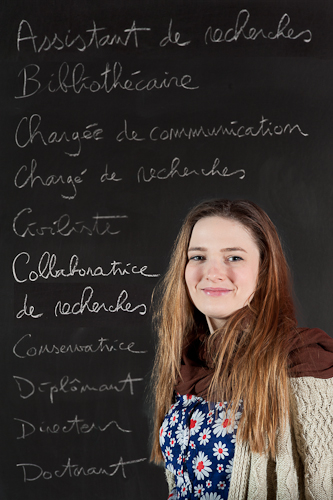 Assistant de recherches
Bibliothécaire
Chargée de communication
Chargé de recherches
Civiliste
Collaboratrice
de recherches
Conservatrice
Diplômant
Directeur
Doctorant